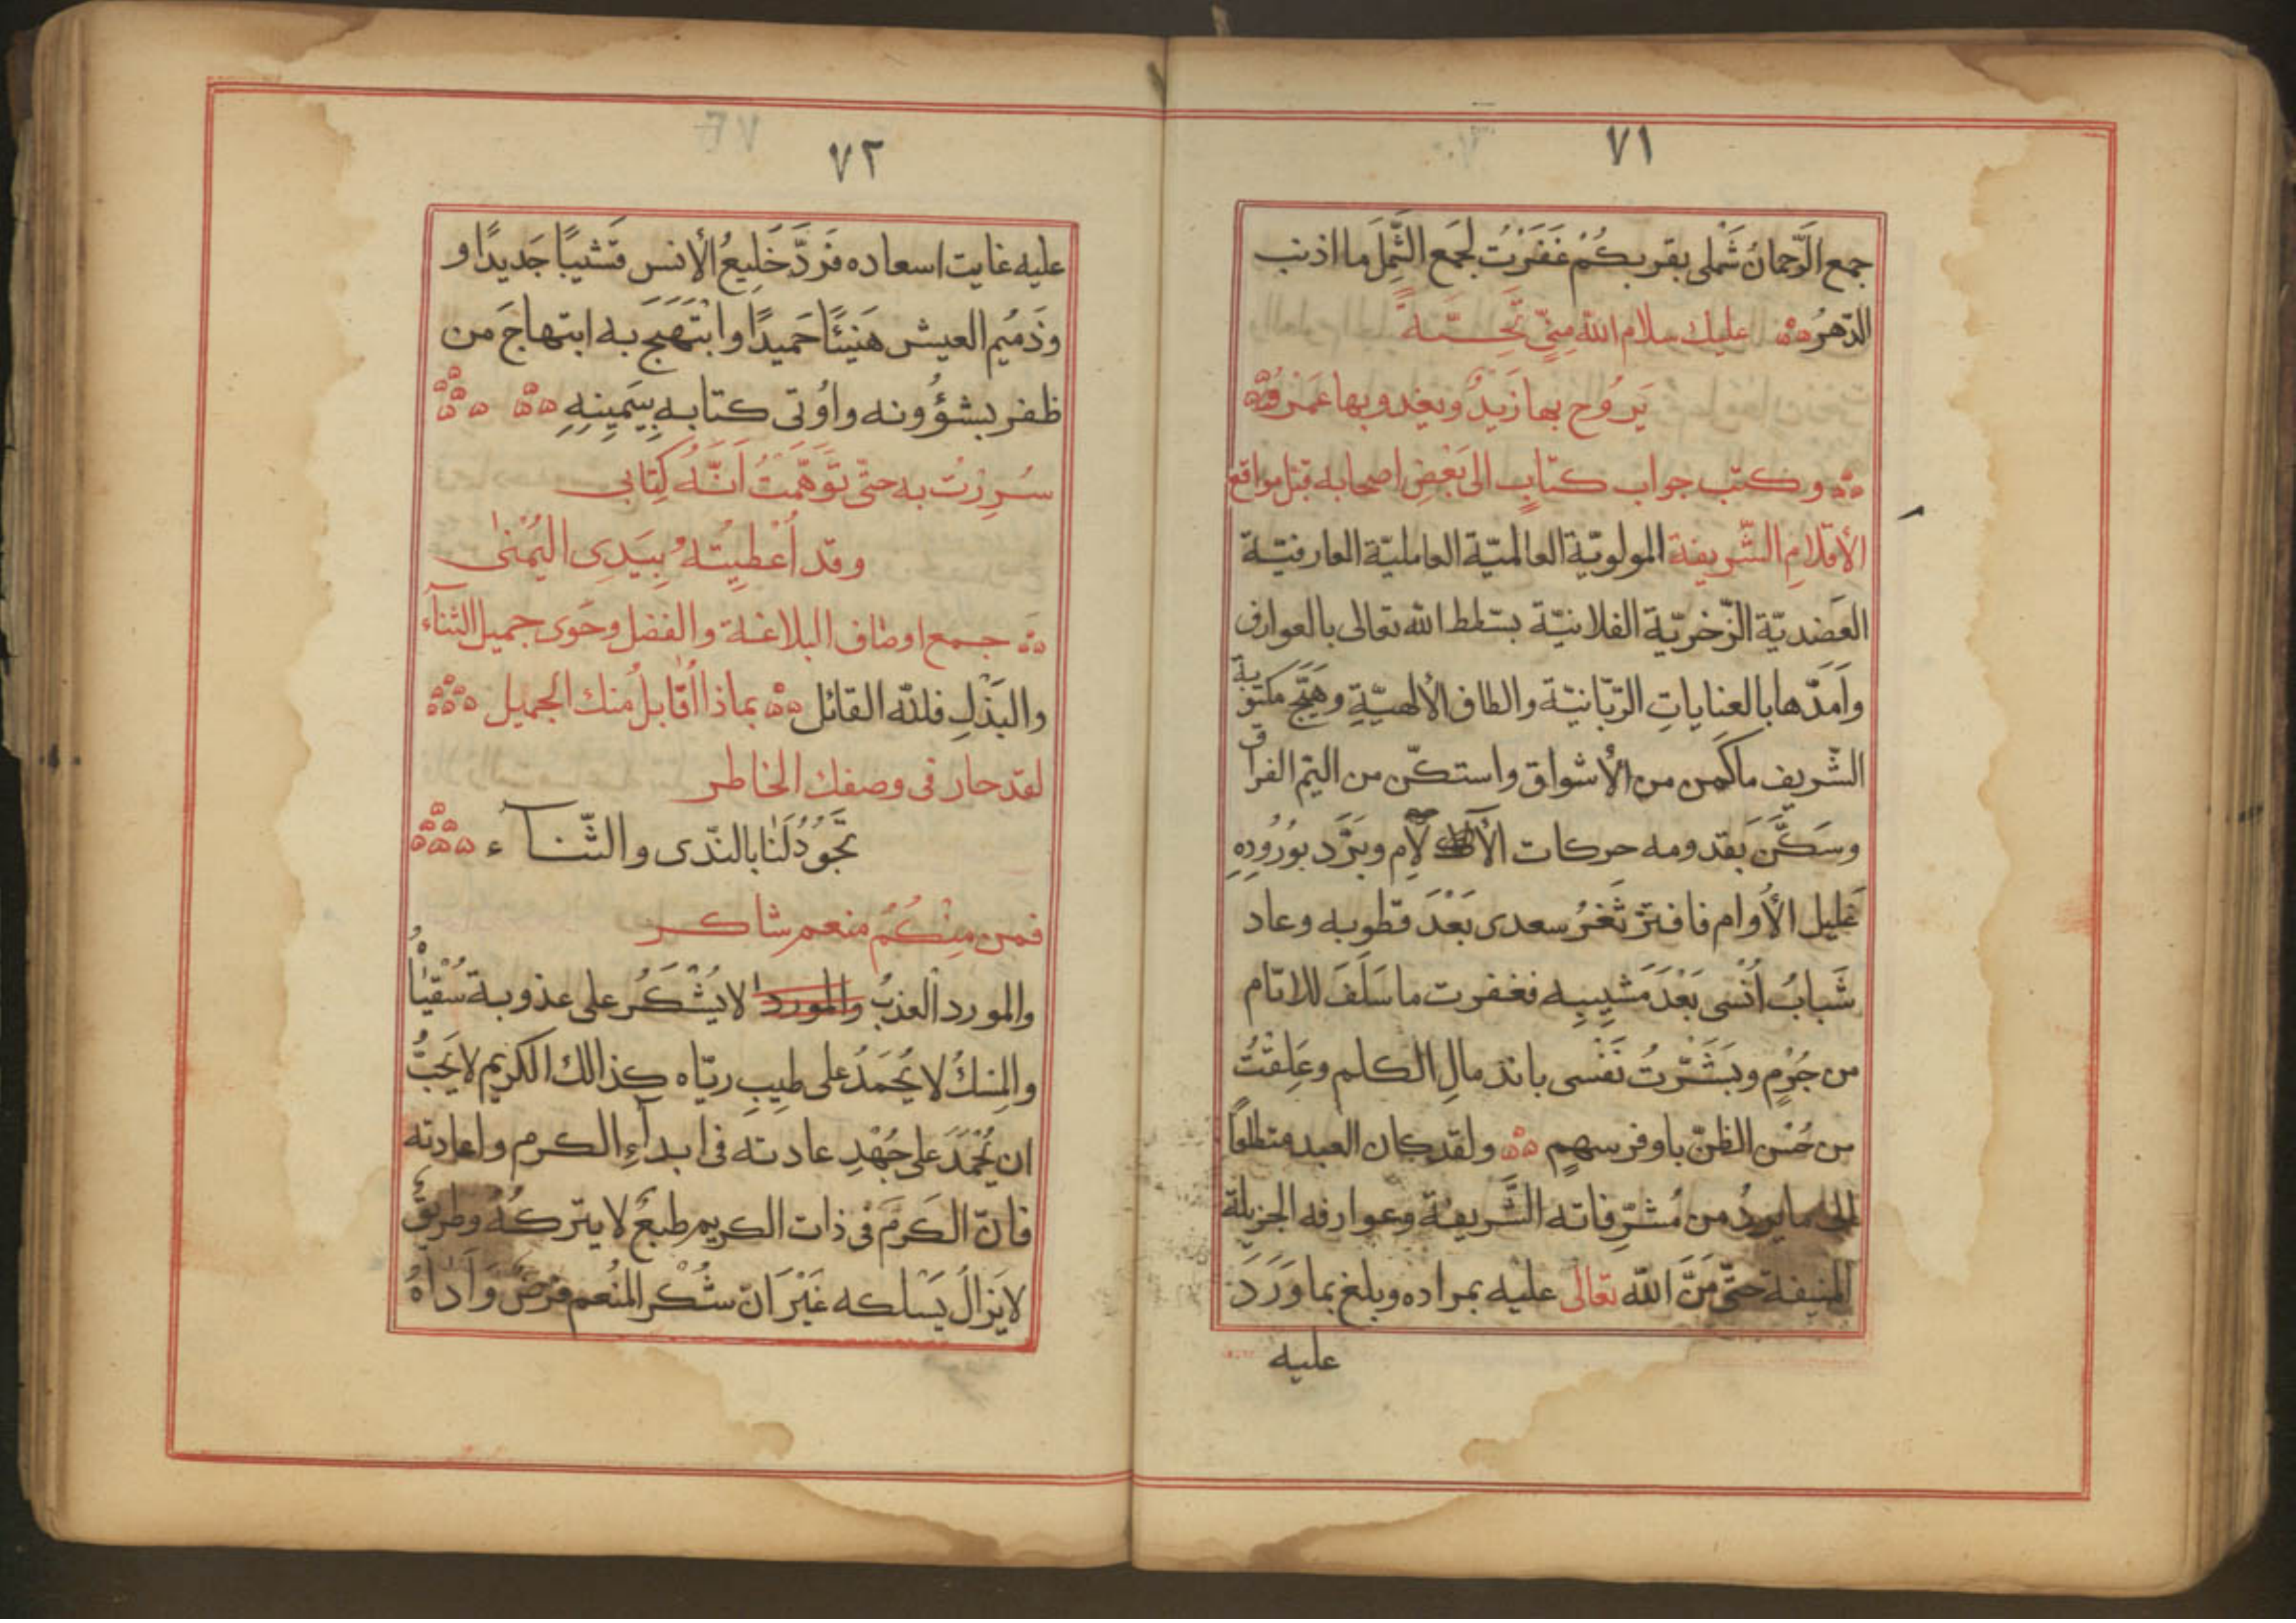 ٧١
جمع الرّحمانُ شَملى بقربكُمْ غَفَرْتُ لجمع الشَّمل ما اذنب
الدّهرُ عليك سلام الله مِنّى تَحِيَّةً
يَرُوح بها زَيدٌ ويغدو بها عَمْرٌو
وكتب جواب كتابٍ الى بَعْضِ اصحابه قبّل مواقع
الأقدامِ الشّريفة المولويّة العالميّة العامليّة العارفيّة
العَضديّة الذّخريّة الفلانيّة بسّطها الله تعالى بالعوارف
وأمَدّها بالعِناياتِ الرّبّانيّة والطاف الألهيّةِ وهَيَّج مكتوبة
الشّريف ما كَمن من الأشواق واستكنّ من اليّم الفراق
وسَكَّنَ بقدومه حركات الآلآمِ وبَرَّد بوُرُودِهِ
غليل الأُوام فافترّ ثَغْرُ سعدى بَعْدَ قطوبه وعاد
شَبابُ اُنْسى بَعْدَ مَشِيبِه فغفرت ما سَلَفَ للايّام
من جُرْمٍ وبَشَّرْتُ نَفْسى باندمالِ الكلم وعَلِقْتُ
من حُسْن الظنّ باوفر سهمٍ ولقد كان العبد متطلعًا
الى ما يردُ من مُشرّفاته الشَّريفة وعوارفه الجزيلة
المنيفة حتّى مَنَّ الله تعالى عليه بمراده وبلغ بما وَرَدَ
عليه
٧٢
عليه غايت اسعاده فَرَدَّ خَلِيعُ الأنس قَشيبًا جَديدًا و
وذَمُيم العيش هَنيئًا حَميدًا وابْتَهَجَ به ابتهاجَ من
ظفر بشؤُونه واُوتى كتابه بِيَمِينِهِ
سُرِرْتُ به حتّى تَوَهَّمْتُ اَنَّهُ كِتابى
وقد اُعْطِيتُهُ بِيَدِى اليُمْنىٰ
جمع اوصاف البلاغة والفضل وحَوى جميل الثنآء
والبَذْلِ فللّه القائل بماذا اُقابلُ منك الجميل
لقد حار فى وصفك الخاطر
تَجُودُ لَنا بالنّدى والثّنآء
فمن مِنْكُمُ منعم شاكر
والمورد العذبُ والمورد لا يُشْكَرُ على عذوبة سُقْياهُ
والمِسكُ لا يُحْمَدُ على طيبِ ريّاه كذالك الكريم لا يَجبُّ
ان يُحْمَدَ على جُهْدِ عادته فى ابدآءِ الكرم واعادته
فانّ الكَرَمَ فى ذات الكريم طبعٌ لا يتركُهُ وطريقٌ
لا يَزالُ يَسْلكه غَيْرَ اَنّ شُكْرَ المُنْعم فرضٌ وَاَداهُ